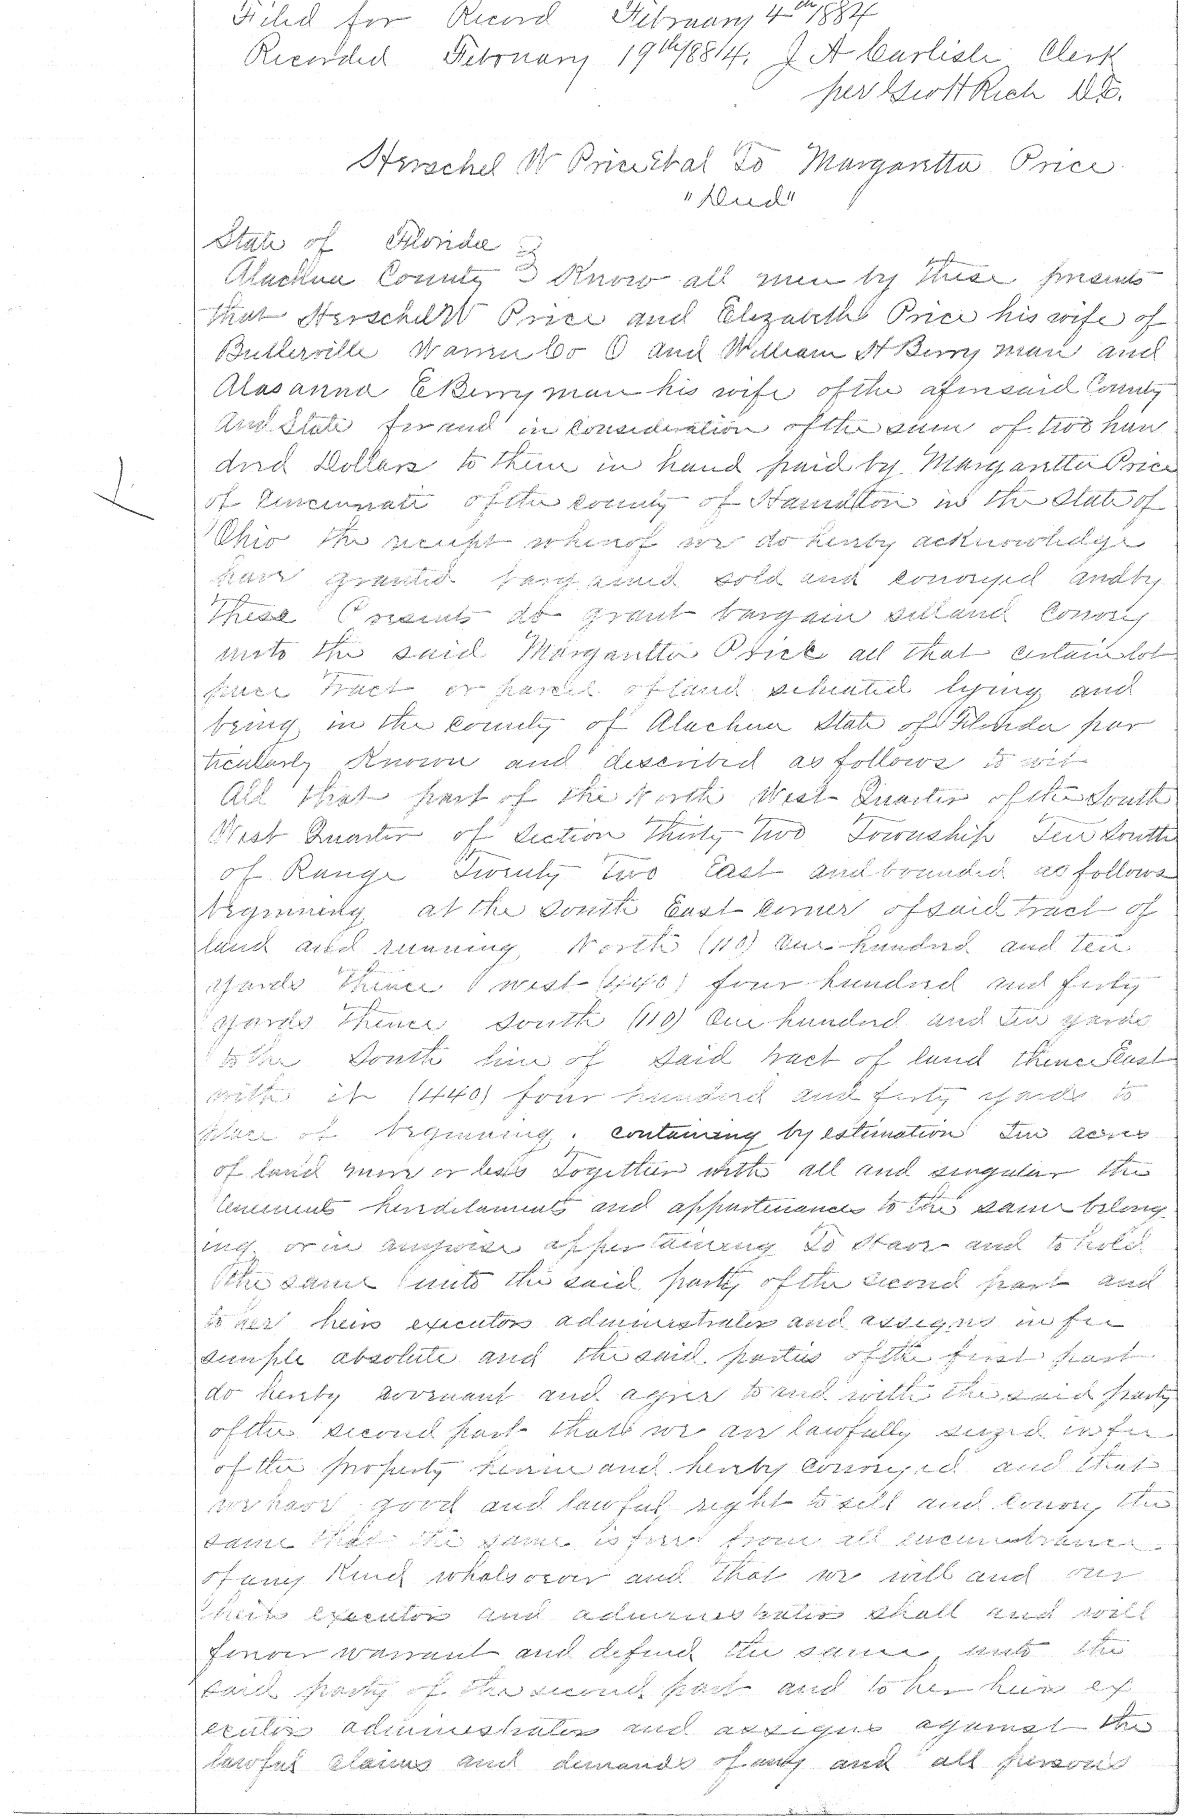 Filed for Record February 4th 1884
Recorded February 19th 1884. J A Carlisle Clerk
per Geo H Rich D.C.
Herschel W Price Et al To Margaretta Price
"Deed"
State of Florida
Alachua County Know all men by these presents
that Herschel W Price and Elizabeth Price his wife of
Butlerville Warren Co O and William H Berryman and
Alasanna E Berryman his wife of the aforesaid County
And State for and in consideration of the sum of two hun
dred Dollars to them in hand paid by Margaretta Price
of Cincinnati of the county of Hamilton in the State of
Ohio the receipt whereof we do hereby acknowledge
have granted bargained sold and conveyed and by
These Presents do grant bargain sell and convey
unto the said Margaretta Price all that certain lot
piece tract or parcel of land situated lying and
being in the county of Alachua State of Florida par
ticularly Known and described as follows to wit
All that part of the North West Quarter of the South
West Quarter of Section Thirty Two Township Ten South
of Range Twenty Two East and bounded as follows
beginning at the South East Corner of said tract of
land and running North (110) One hundred and ten
yards thence west (440) four hundred and forty
yards thence South (110) One hundred and ten yards
to the South line of said tract of land thence East
with it (440) four hundred and forty yards to
place of beginning. containing by estimation Ten acres
of land more or less Together with all and singular the
tenements hereditaments and appurtenances to the same belong
ing or in anywise appertaining To Have and to hold
the same unto the said party of the second part and
to her heirs executors administrators and assigns in fee
simple absolute and the said parties of the first part
do hereby covenant and agree to and with the said party
of the second part that we are lawfully seized in fee
of the property herein and hereby conveyed and that
we have good and lawful right to sell and convey the
same that the same is free from all encumbrance
of any Kind whatsoever and that we will and our
heirs executors and administrators shall and will
forever warrant and defend the same unto the
said party of the second part and to her heirs ex
ecutors administrators and assigns against the
lawful claims and demands of any and all persons